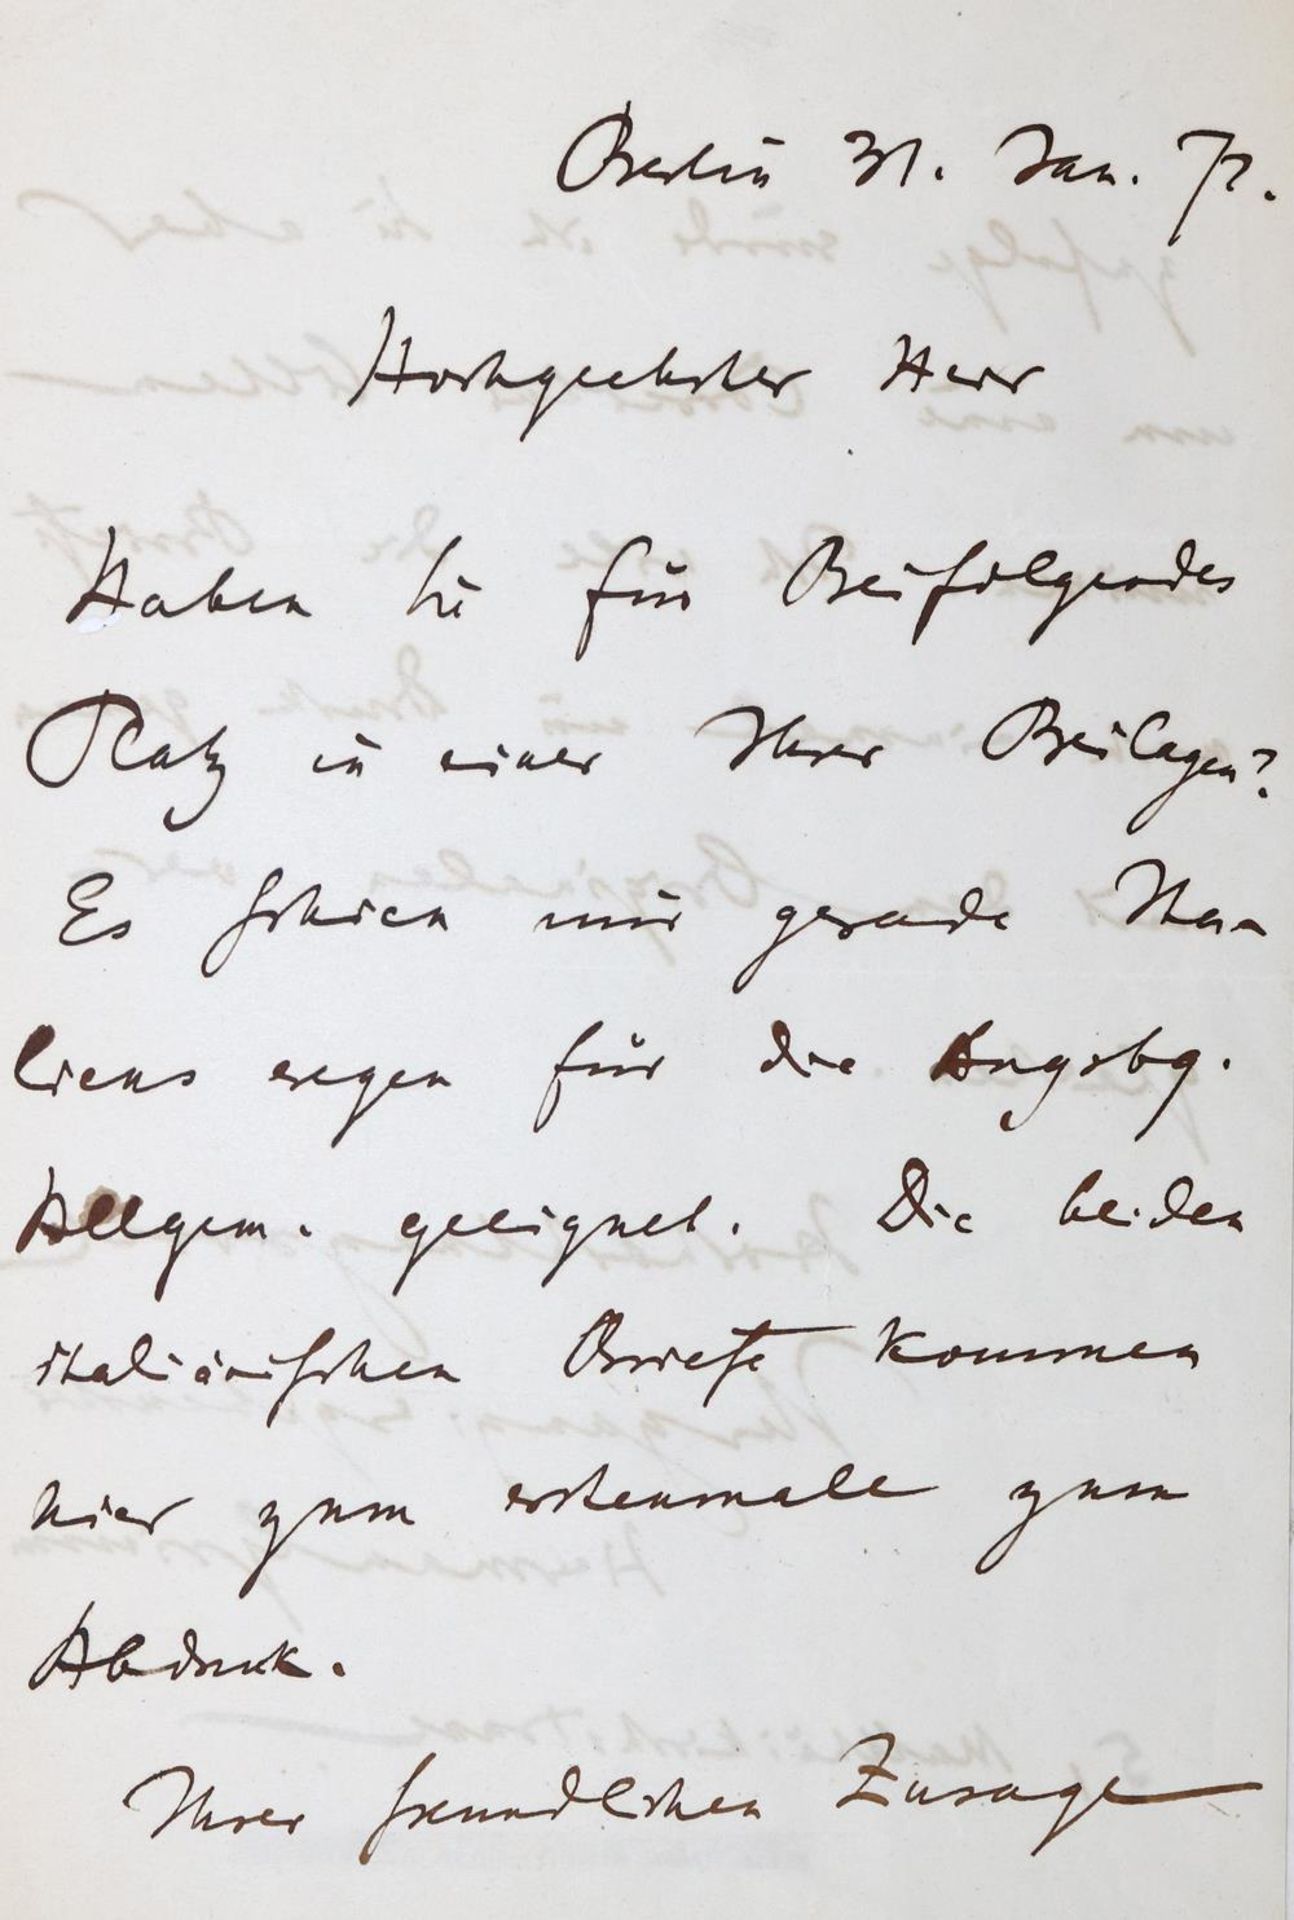 Berlin 31. Jan. 71.
Hochgeehrter Herr
Haben Sie für Beifolgendes
Platz in einer Ihrer Beilagen?
Es schien mir gerade Ita-
liens wegen für die Augsbg.
Allgem. geeignet. Die beiden
italiänischen Briefe kommen
hier zum erstenmale zum
Abdruck.
Ihrer freundlichen Zusage